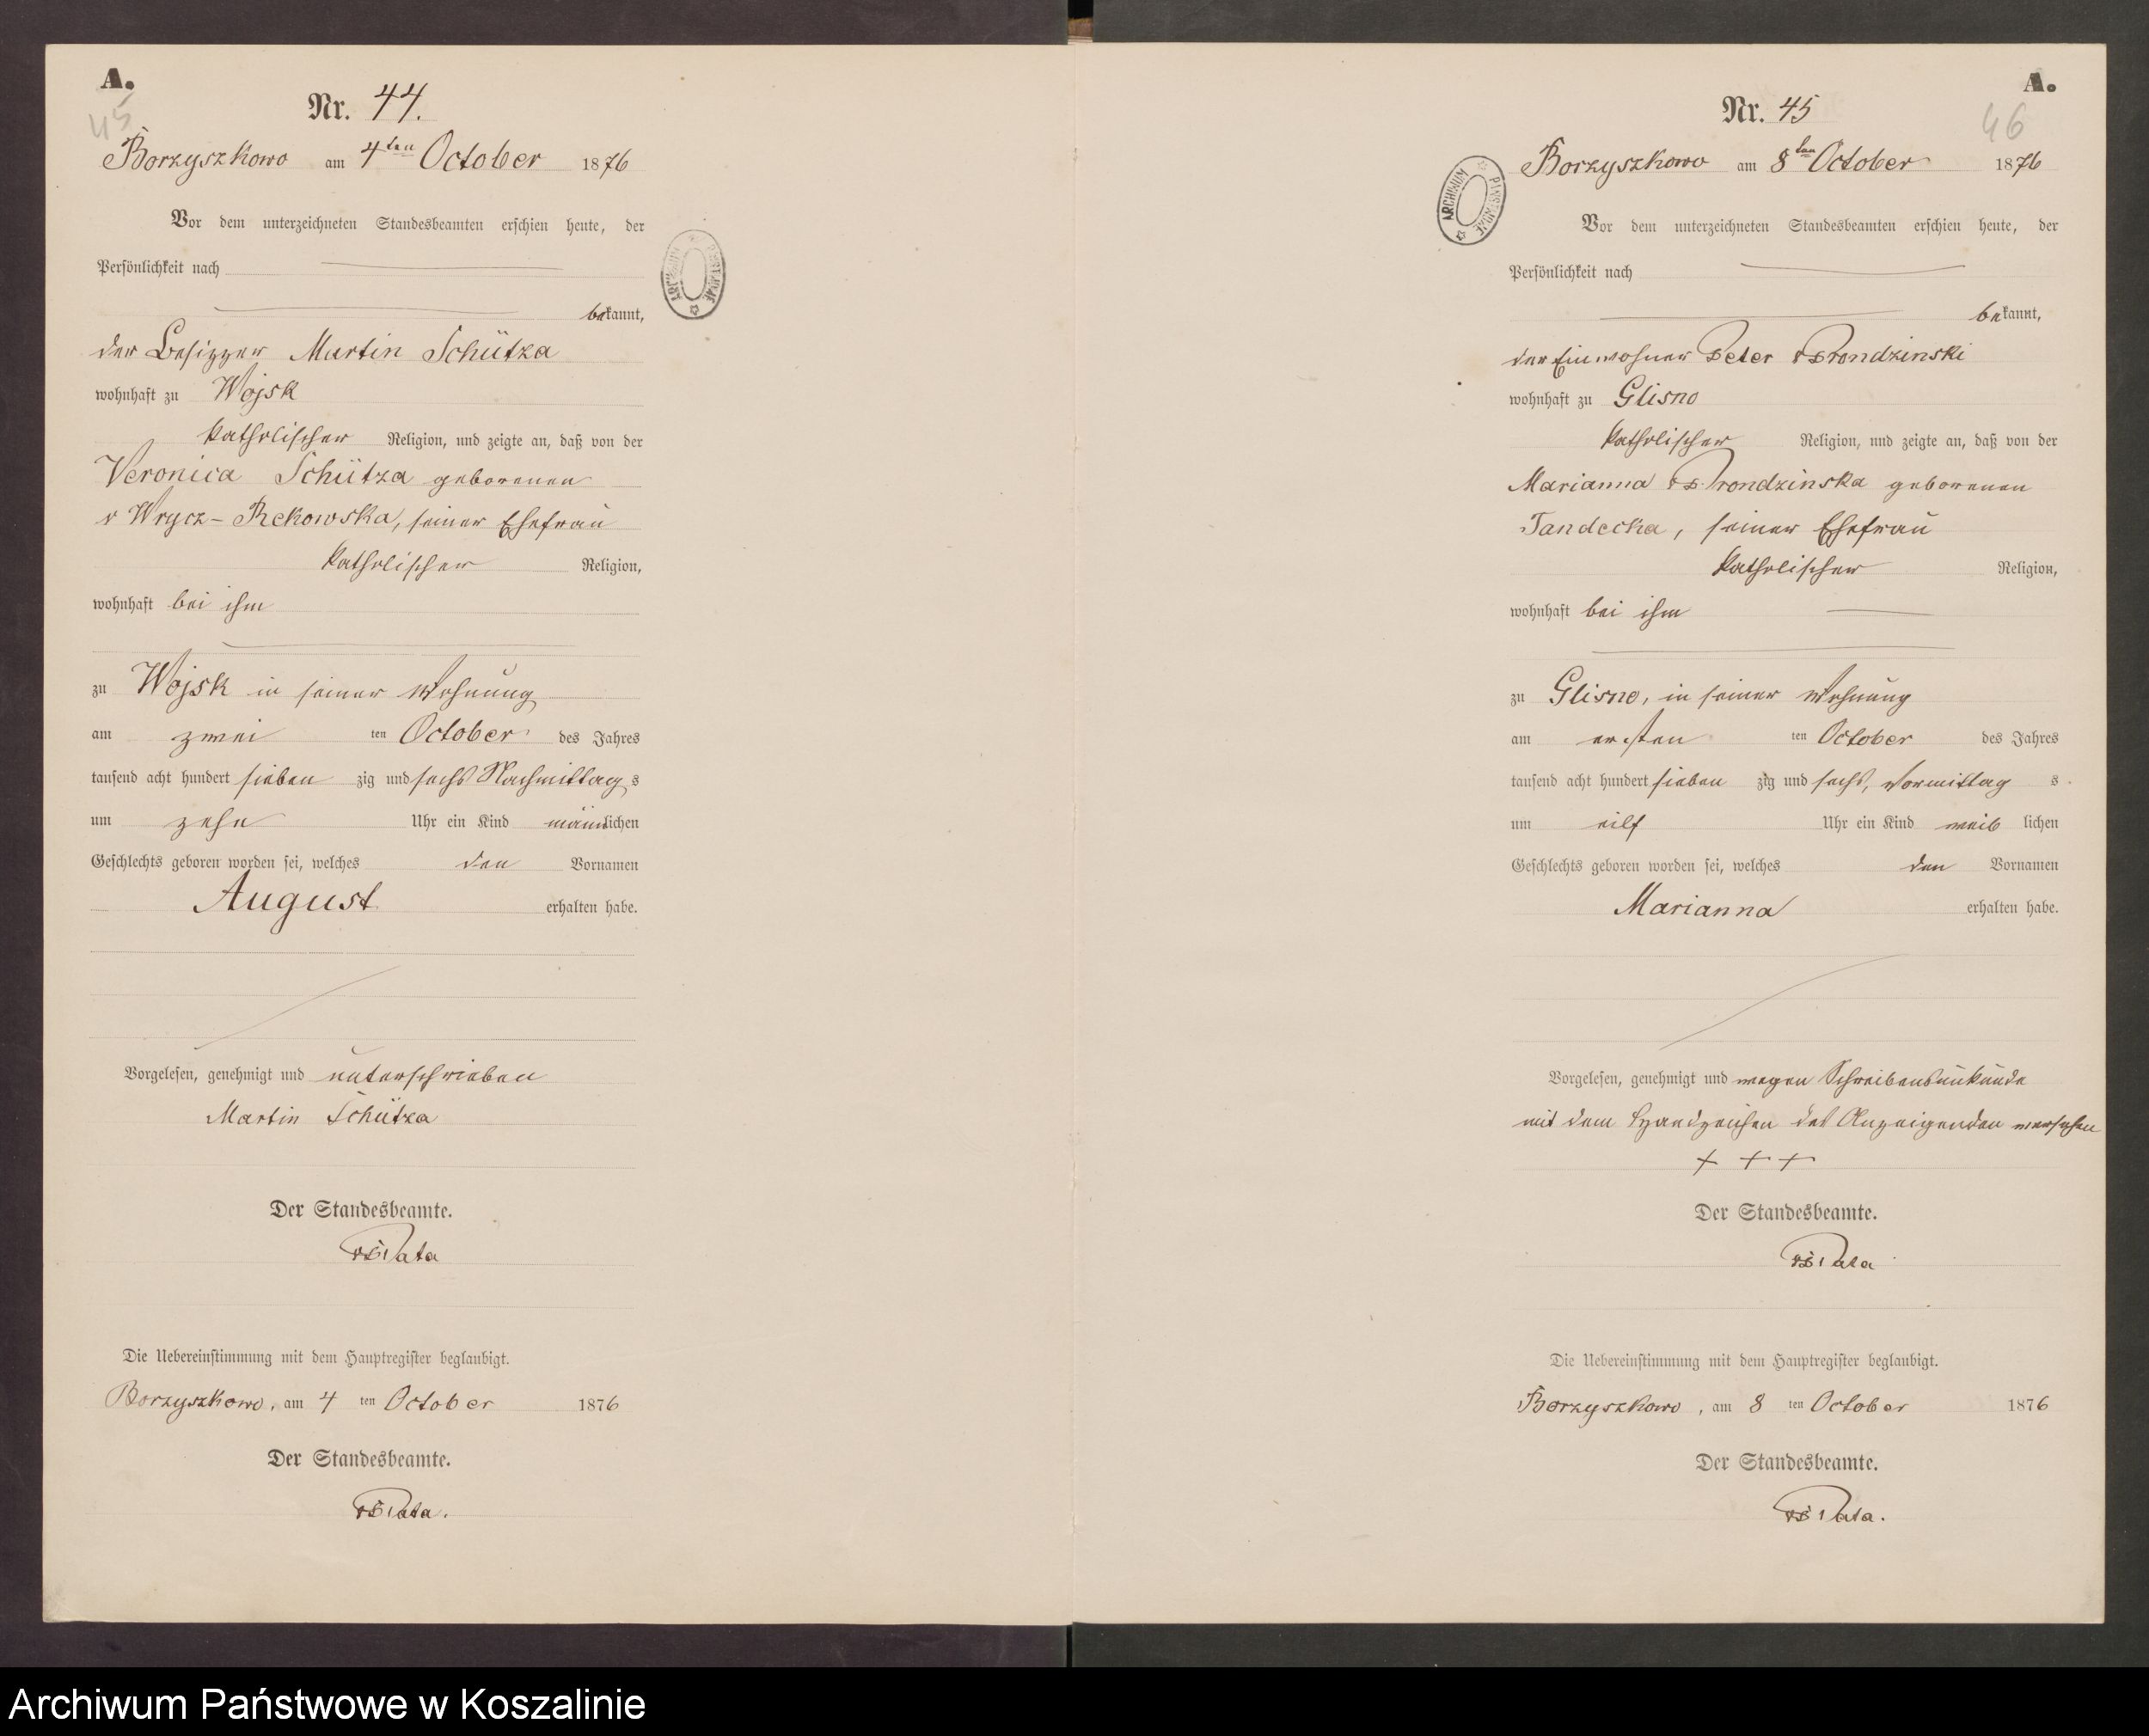 A.
45
Nr. 44.
Borzyszkowo am 4ten October 1876
Vor dem unterzeichneten Standesbeamten erschien heute, der
Persönlichkeit nach
bekannt,
der Besitzer Martin Schütza
wohnhaft zu Wojsk
katholischer Religion, und zeigte an, daß von der
Veronica Schütza geborenen
v Wrycz-Rekowska, seiner Ehefrau
katholischer Religion,
wohnhaft bei ihm
zu Wojsk in seiner Wohnung
am zwei ten October des Jahres
tausend acht hundert sieben zig und sechs Nachmittags
um zehn Uhr ein Kind männlichen
Geschlechts geboren worden sei, welches den Vornamen
August erhalten habe.
Vorgelesen, genehmigt und unterschrieben
Martin Schütza
Der Standesbeamte.
Pata
Die Uebereinstimmung mit dem Hauptregister beglaubigt.
Borzyszkowo, am 4 ten October 1876
Der Standesbeamte.
Pata.
ARCHIWUM PAŃSTWOWE
A.
46
Nr. 45
Borzyszkowo am 8ten October 1876
Vor dem unterzeichneten Standesbeamten erschien heute, der
Persönlichkeit nach
bekannt,
der Einwohner Peter v Prondzinski
wohnhaft zu Glisno
katholischer Religion, und zeigte an, daß von der
Marianna v Prondzinska geborenen
Tandecka, seiner Ehefrau
katholischer Religion,
wohnhaft bei ihm
zu Glisno, in seiner Wohnung
am ersten ten October des Jahres
tausend acht hundert sieben zig und sechs, Vormittag s
um eilf Uhr ein Kind weib lichen
Geschlechts geboren worden sei, welches den Vornamen
Marianna erhalten habe.
Vorgelesen, genehmigt und wegen Schreibensunkunde
mit dem Handzeichen des Anzeigenden versehen
+ + +
Der Standesbeamte.
Pata
Die Uebereinstimmung mit dem Hauptregister beglaubigt.
Borzyszkowo, am 8 ten October 1876
Der Standesbeamte.
Pata.
ARCHIWUM PAŃSTWOWE
Archiwum Państwowe w Koszalinie